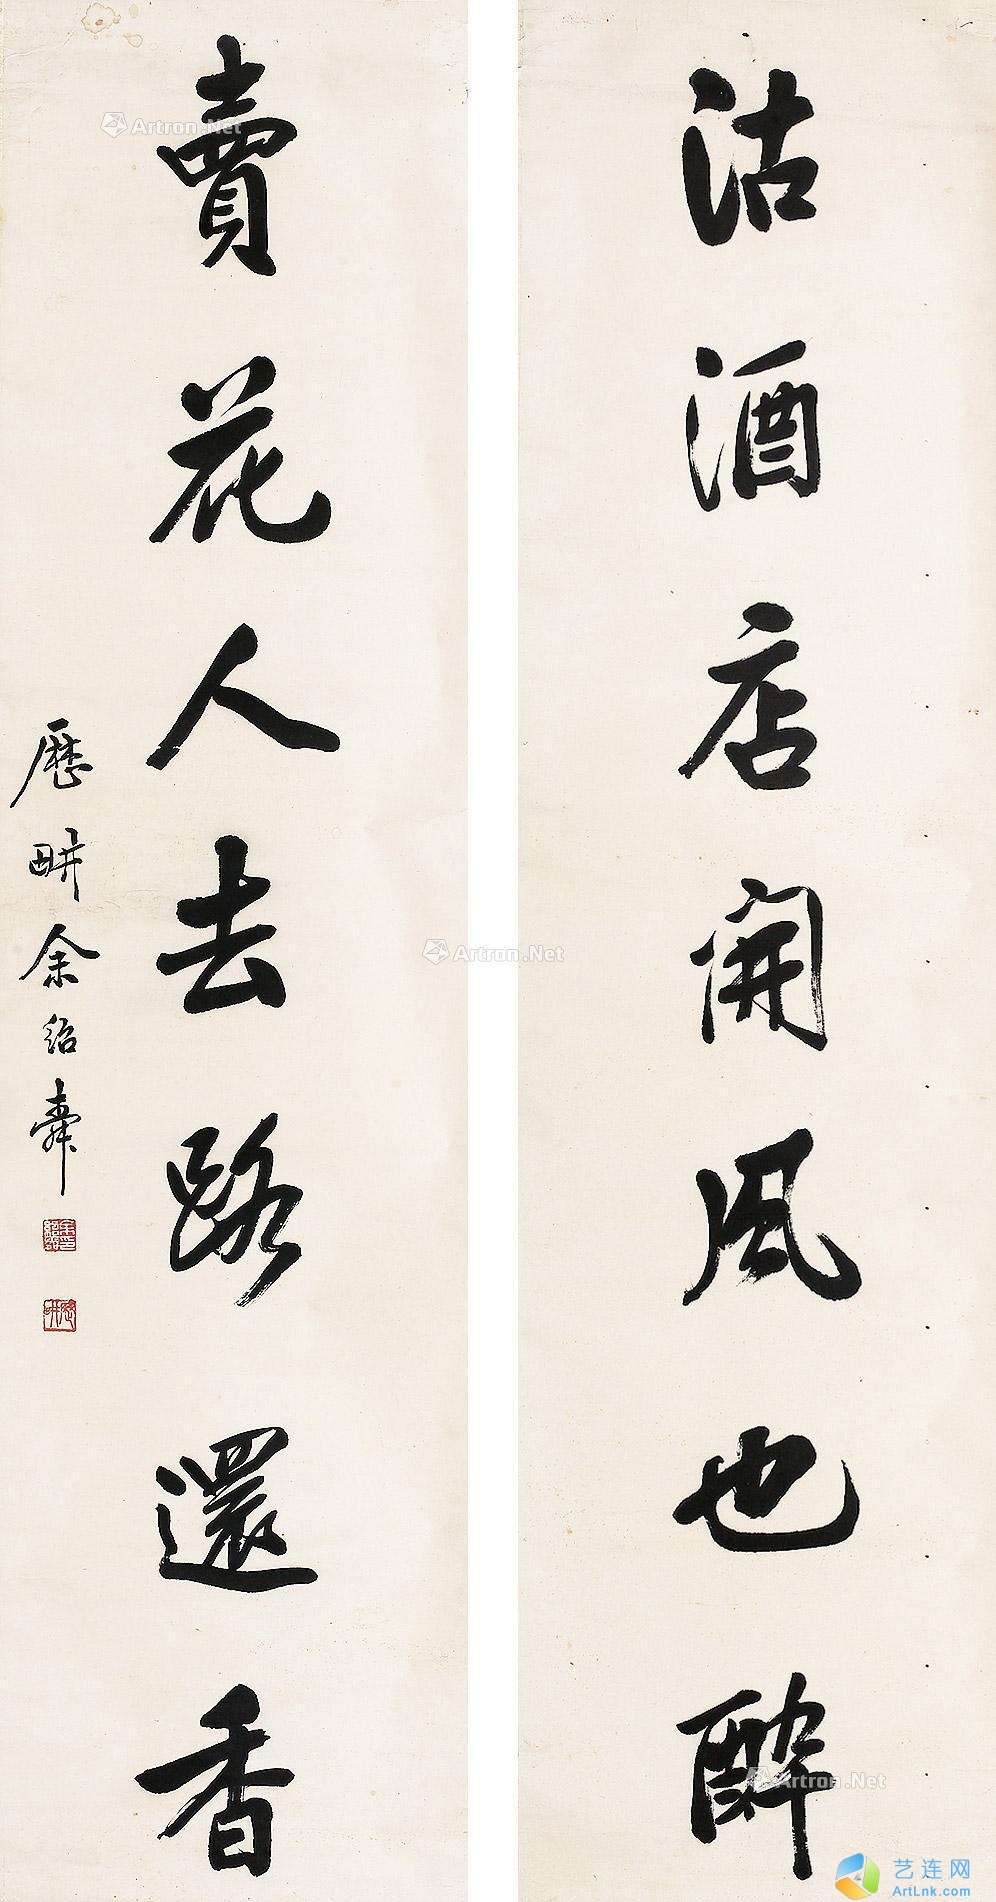 沽酒店開風也醉
賣花人去路還香
歷畊余紹舜
Artron.Net
Artron.Net
Artron.Net
艺连网
ArtLnk.com